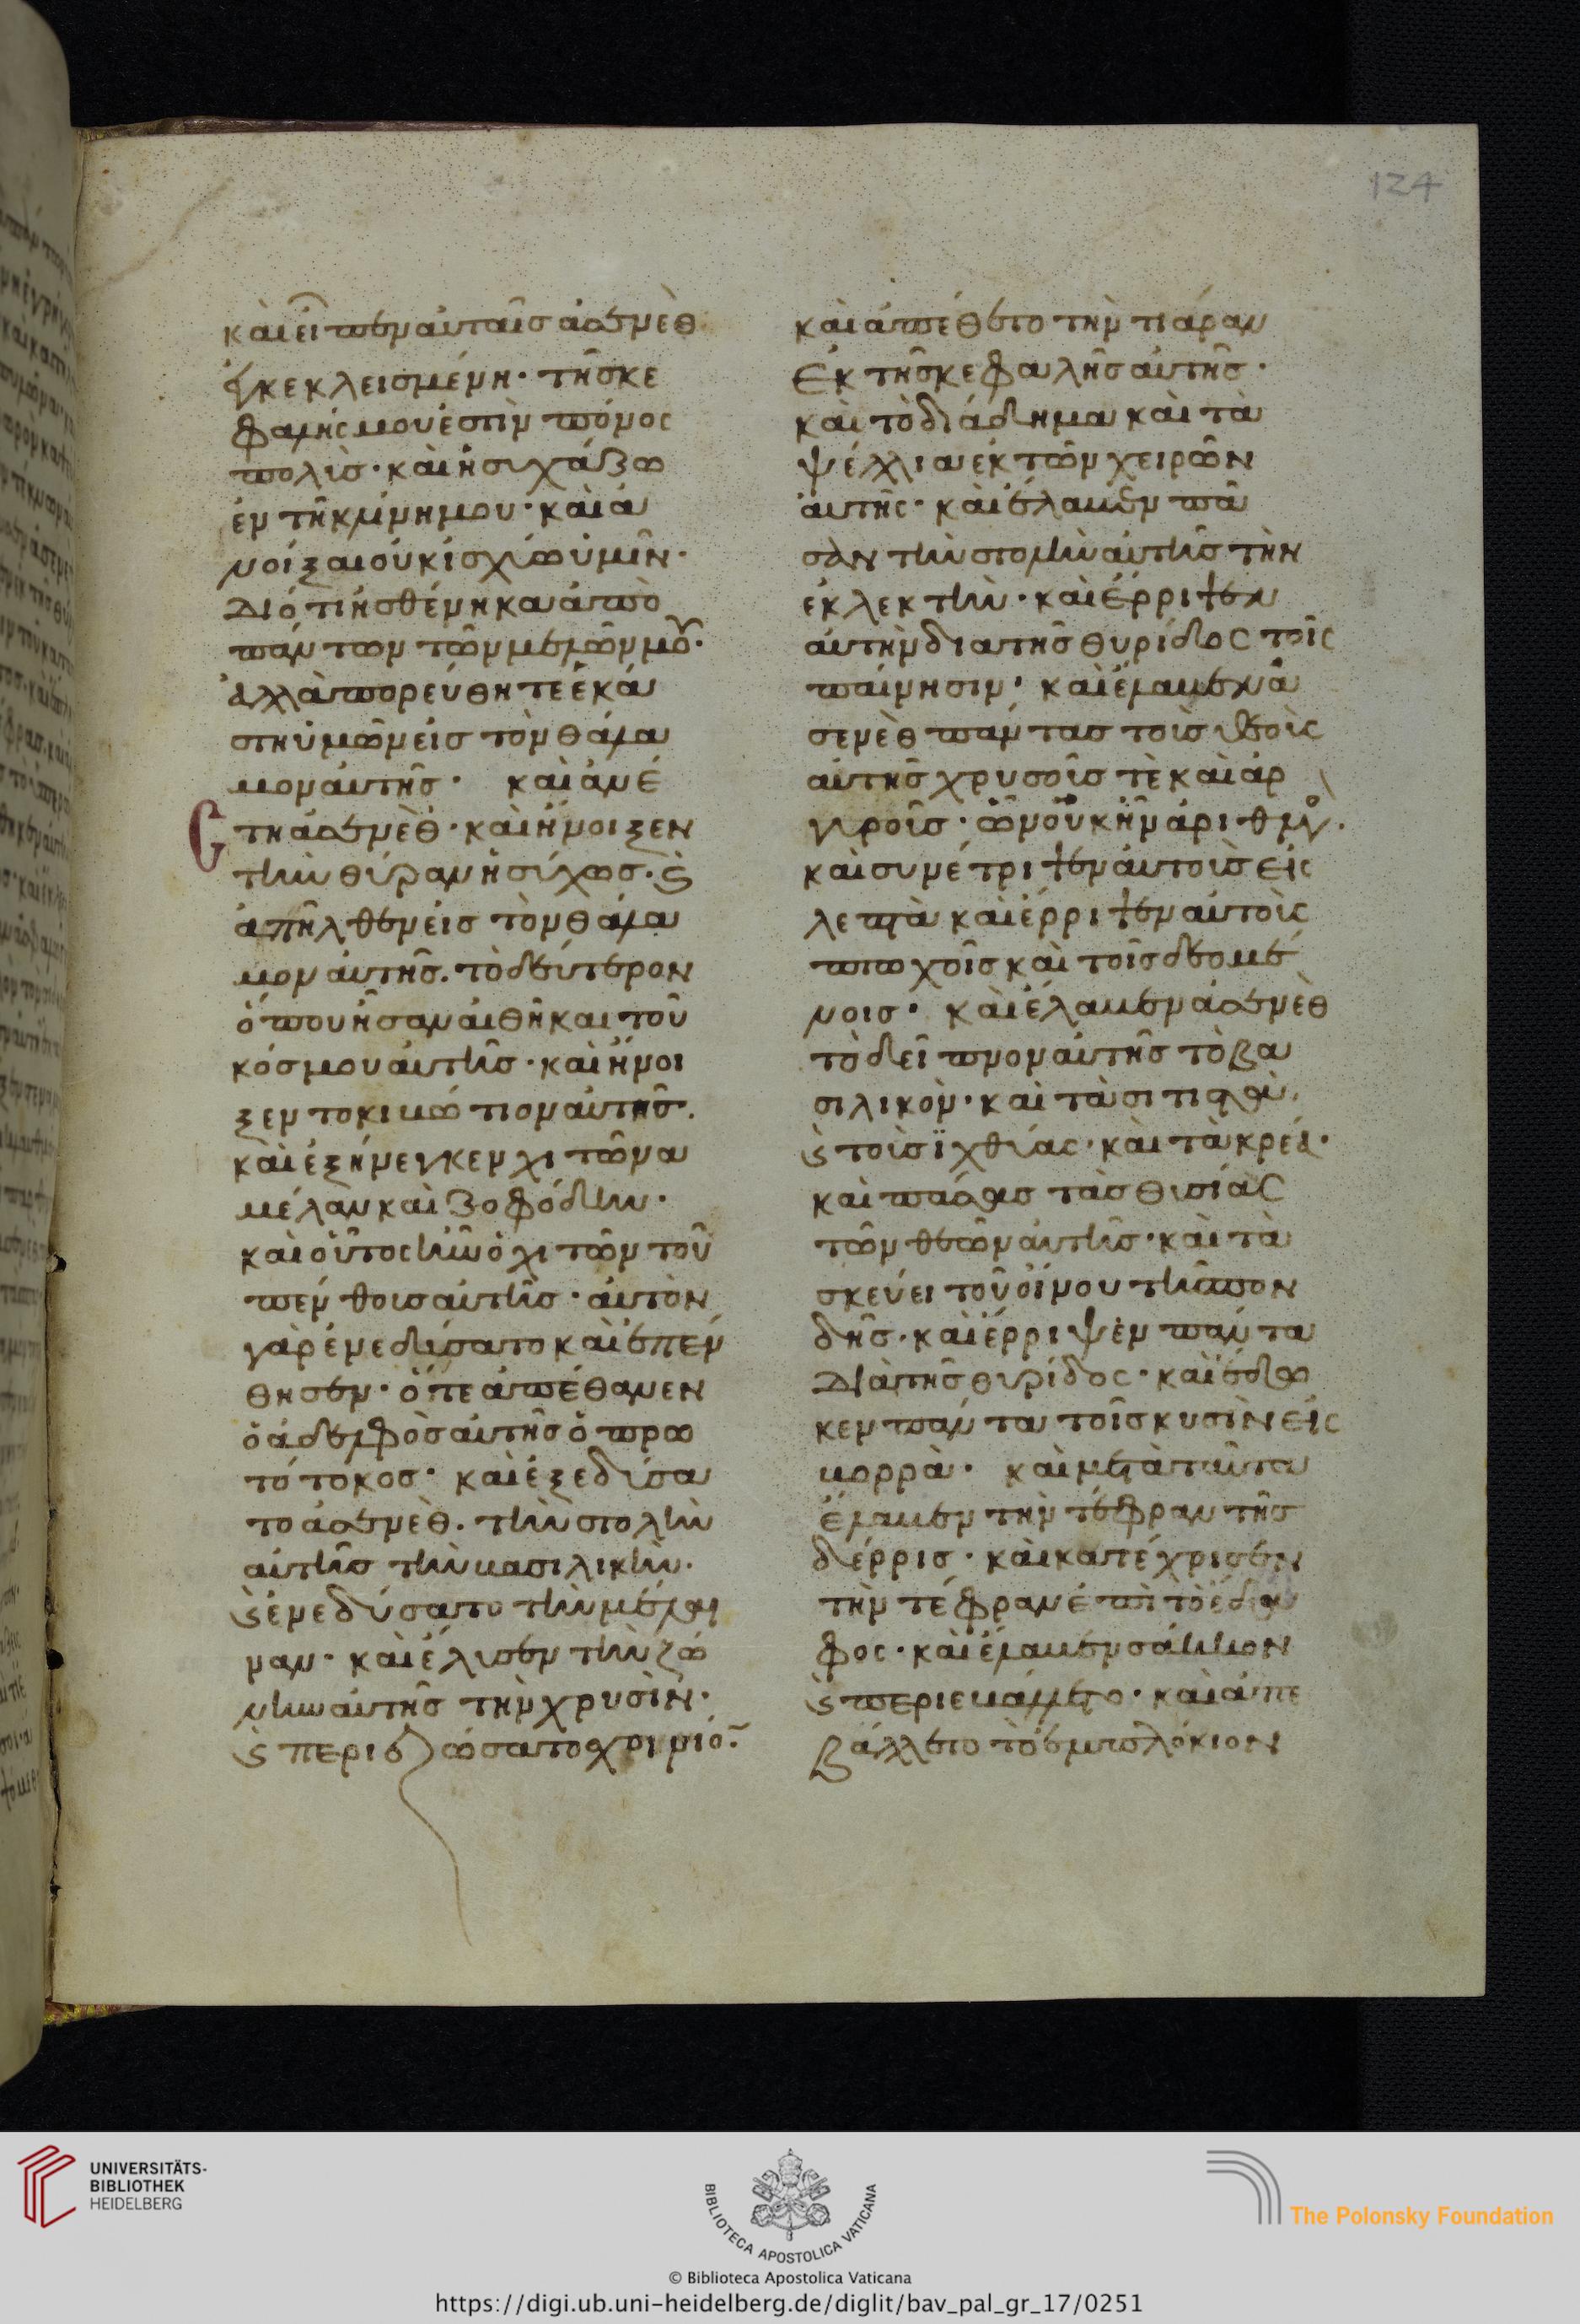 124
καὶ εἶπεν αὐταῖς ἀσενὲθ
ἐγκεκλεισμένη· τῆς κε
φαλῆς μου ἐστὶν πόνος
πολὶς· καὶ ἡσιχάζω
ἐν τῆ κλίνη μου· καὶ ἀ
νοίξαι οὐκ ἰσχύω ὑμῖν·
Διότι ἠσθένηκα ἀπὸ
πάντων τῶν μελῶν μοῦ·
Ἀλλὰ πορεύθητε ἑκά
στη ὑμῶν εἰς τὸν θάλα
μον αὐτῆς· καὶ ἀνέ
στη ἀσενὲθ· καὶ ἤνοιξεν
τὴν θύραν ἡσύχως· ϛ
ἀπῆλθεν εἰς τὸν θάλα
μον αὐτῆς· τὸ δεύτερον
ὅπου ἦσαν αἱ θῆκαι τοῦ
κόσμου αὐτῆς· καὶ ἤνοι
ξεν το κιβώτιον αὐτῆς·
καὶ ἐξήνεγκεν χιτῶνα
μέλαν καὶ ζοφόδην·
καὶ οὗτος ἦν ὁ χιτὼν τοῦ
πένθοις αὐτῆς· αὐτὸν
γὰρ ἐνεδύσατο καὶ ἐπέν
θησεν· ὅτε ἀπέθανεν
ὁ ἀδελφὸς αὐτῆς ὁ πρω
τότοκος· καὶ ἐξεδύσα
το ἀσενὲθ· τὴν στολὴν
αὐτῆς τὴν βασιλικὴν·
ϛ ἐνεδύσατο τὴν μέλαι
ναν· καὶ ἔλυσεν τὴν ζώ
νην αὐτῆς τὴν χρυσὶν·
ϛ περιεζώσατο σχοινίον·
καὶ ἀπέθετο τὴν τιάραν
Ἐκ τῆς κεφαλῆς αὐτῆς·
καὶ τὸ διάδημα καὶ τὰ
ψέλλια ἐκ τῶν χειρῶν
αὐτῆς· καὶ ἔλαβεν πᾶ
σαν τὴν στολὴν αὐτῆς τὴν
ἐκλεκτὴν· καὶ ἔρριψεν
αὐτὴν δια τῆς θυρίδος τοῖς
παίνησιν· καὶ ἔλαβεν ἀ
σενὲθ πάντας τοὶς θεοὶς
αὐτῆς χρυσοῖς τὲ καὶ ἀρ
γυροῖς· ὧν οὐκ ἦν ἀριθμὸς·
καὶ συνέτριψεν αὐτοὶς εἰς
λεπτὰ καὶ ἔρριψεν αὐτοὶς
πτωχοῖς καὶ τοῖς δεομέ
νοις· καὶ ἔλαβεν ἀσενὲθ
τὸ δεῖπνον αὐτῆς τὸ βα
σιλικὸν· καὶ τὰ σιτιστὰ·
ϛ τοὶς ἰχθύας· καὶ τὰ κρέα·
καὶ πάσας τὰς θυσίας
τῶν θεῶν αὐτῆς· καὶ τὰ
σκεύει τοῦ οἴνου τῆς σπον
δῆς· καὶ ἔρριψεν πάντα
Διὰ τῆς θυρίδος· καὶ ἔδω
κεν πάντα τοῖς κυσὶν εἰς
βορρὰ· καὶ μετὰ ταῦτα
ἔλαβεν τὴν τέφραν τῆς
δέρρις· καὶ κατέχρισεν
τὴν τέφραν ἐπὶ τὸ ἔδα
φος· καὶ ἔλαβεν σάκκον
ϛ περιεβάλλετο· καὶ ἀπε
βάλλετο τὸ ἐμπλόκιον
UNIVERSITÄTS-
BIBLIOTHEK
HEIDELBERG
BIBLIOTECA APOSTOLICA VATICANA
The Polonsky Foundation
© Biblioteca Apostolica Vaticana
https://digi.ub.uni-heidelberg.de/diglit/bav_pal_gr_17/0251